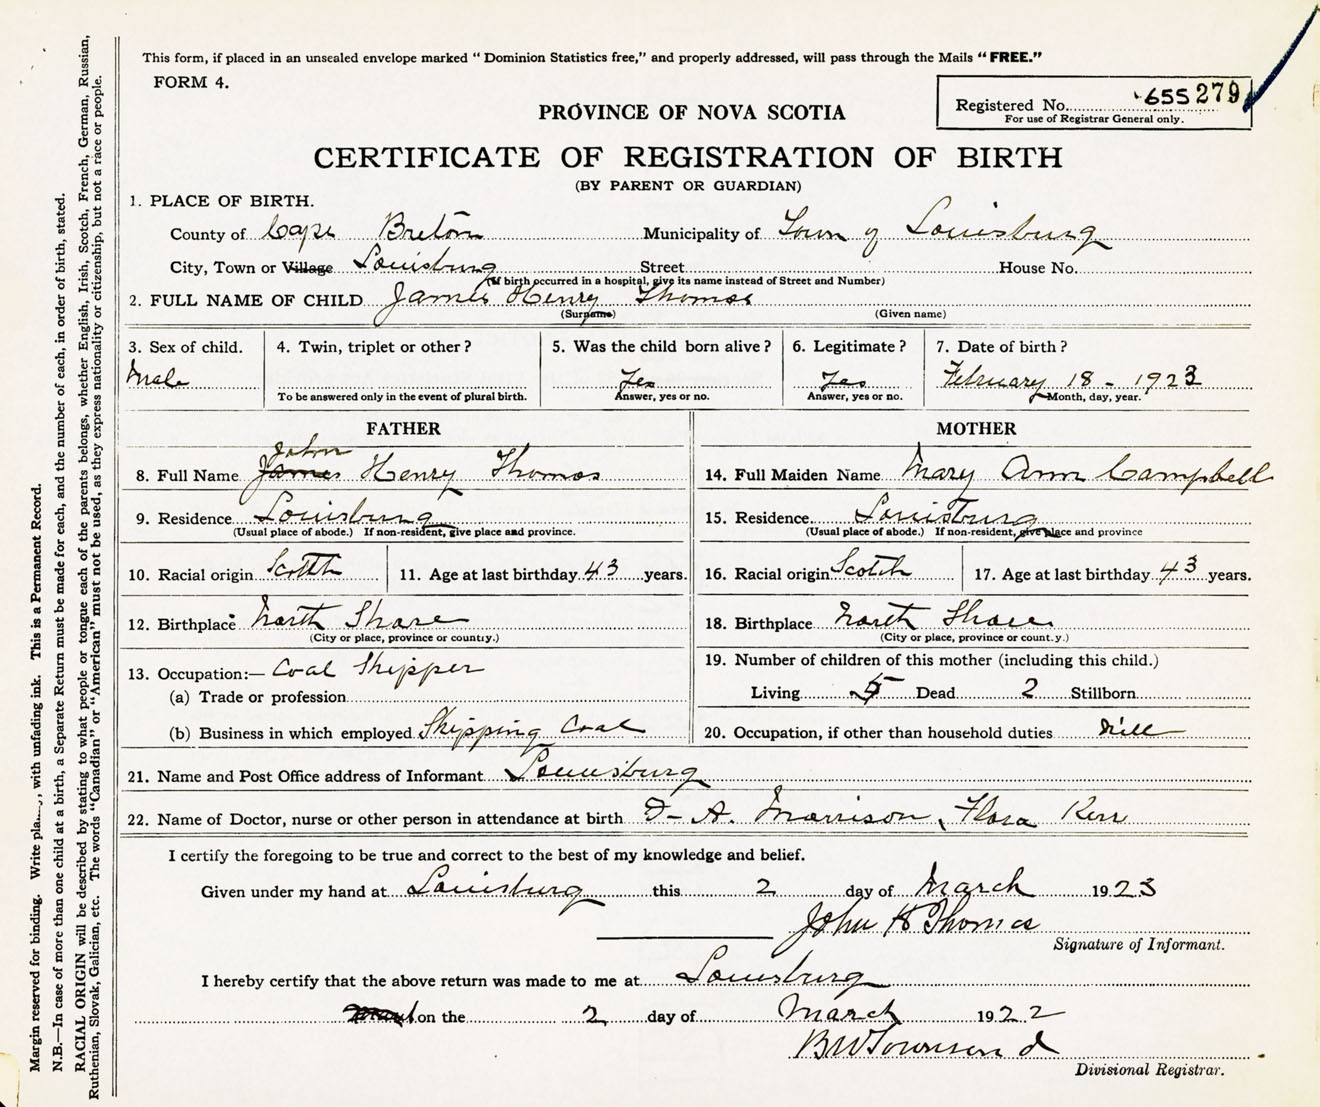 This form, if placed in an unsealed envelope marked “Dominion Statistics free,” and properly addressed, will pass through the Mails “FREE.”
FORM 4.
Registered No. 655279
For use of Registrar General only.
PROVINCE OF NOVA SCOTIA
CERTIFICATE OF REGISTRATION OF BIRTH
(BY PARENT OR GUARDIAN)
1. PLACE OF BIRTH.
County of Cape Breton Municipality of Town of Louisburg
City, Town or Village Louisburg Street House No.
(If birth occurred in a hospital, give its name instead of Street and Number)
2. FULL NAME OF CHILD James Henry Thomas
(Surname) (Given name)
3. Sex of child. 4. Twin, triplet or other? 5. Was the child born alive? 6. Legitimate? 7. Date of birth?
Male Yes Yes February 18 - 1923
To be answered only in the event of plural birth. Answer, yes or no. Answer, yes or no. Month, day, year.
FATHER MOTHER
John
8. Full Name James Henry Thomas 14. Full Maiden Name Mary Ann Campbell
9. Residence Louisburg 15. Residence Louisburg
(Usual place of abode.) If non-resident, give place and province. (Usual place of abode.) If non-resident, give place and province
10. Racial origin Scotch 11. Age at last birthday 43 years. 16. Racial origin Scotch 17. Age at last birthday 43 years.
12. Birthplace North Shore 18. Birthplace North Shore
(City or place, province or country.) (City or place, province or count.y.)
13. Occupation:— Coal Shipper 19. Number of children of this mother (including this child.)
(a) Trade or profession Living 5 Dead 2 Stillborn
(b) Business in which employed Shipping Coal 20. Occupation, if other than household duties Nill
21. Name and Post Office address of Informant Louisburg
22. Name of Doctor, nurse or other person in attendance at birth A. Morrison, Flora Kerr
I certify the foregoing to be true and correct to the best of my knowledge and belief.
Given under my hand at Louisburg this 2 day of March 1923
John H Thomas
Signature of Informant.
I hereby certify that the above return was made to me at Louisburg
on the 2 day of March 1922
B W Townsend
Divisional Registrar.
Margin reserved for binding. Write , with unfading ink. This is a Permanent Record.
N.B.—In case of more than one child at a birth, a Separate Return must be made for each, and the number of each, in order of birth, stated.
RACIAL ORIGIN will be described by stating to what people or tongue each of the parents belongs, whether English, Irish, Scotch, French, German, Russian,
Ruthenian, Slovak, Galician, etc. The words “Canadian” or “American” must not be used, as they express nationality or citizenship, but not a race or people.